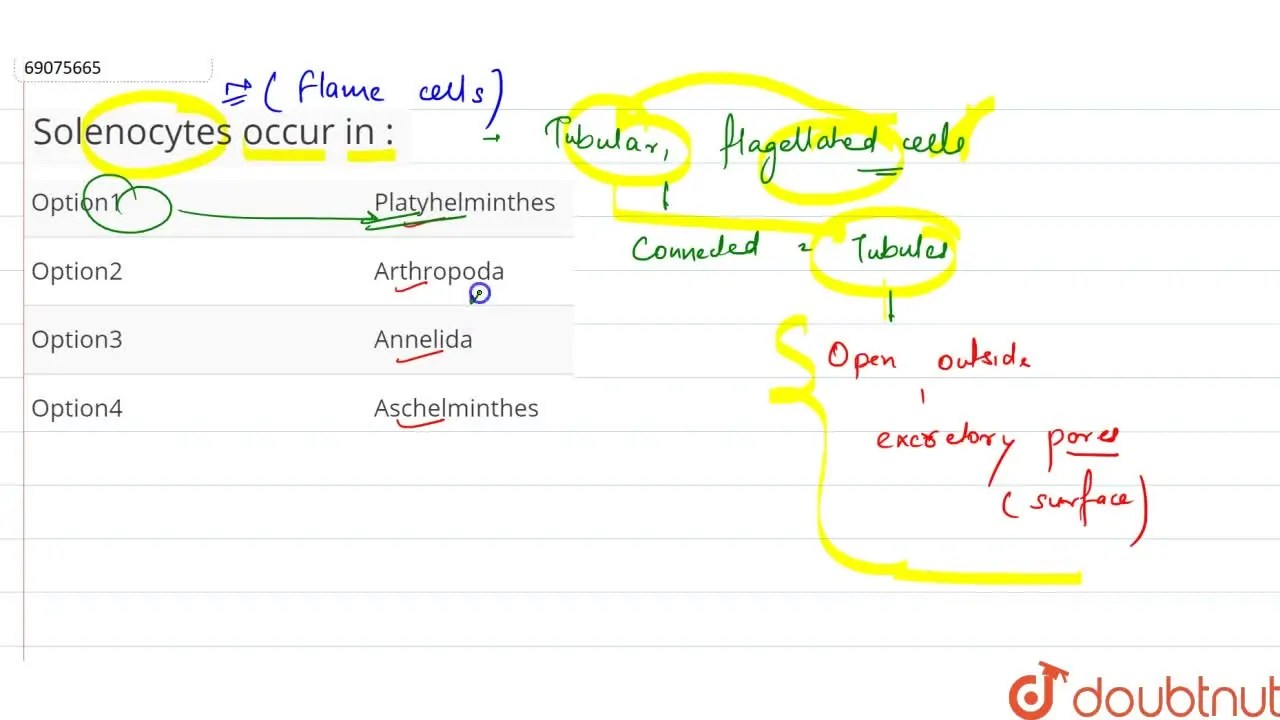 69075665
(Flame cells)
Solenocytes occur in :
→ Tubular, flagellated cells
Option1 Platyhelminthes
Connected = Tubules
Option2 Arthropoda
Option3 Annelida
Open outside
Option4 Aschelminthes
excretory pores
(surface)
doubtnut